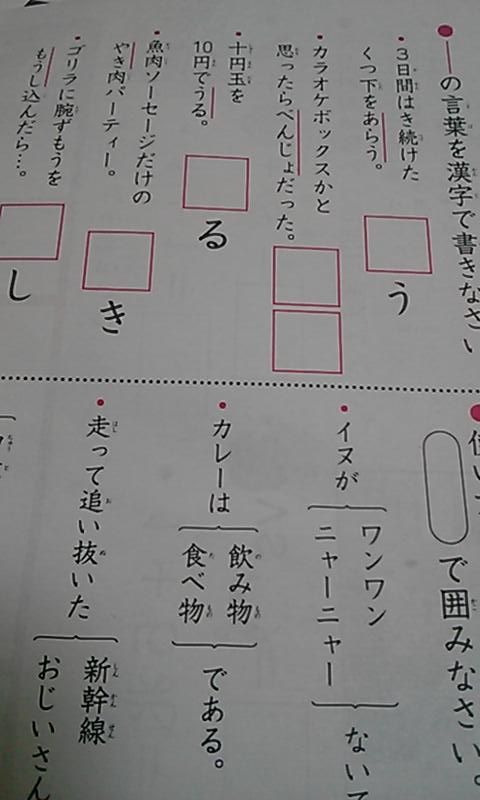 ●――の言葉を漢字で書きなさい
・3日間はき続けた
くつ下をあらう。
う
・カラオケボックスかと
思ったらべんじょだった。
・十円玉を
10円でうる。
る
・魚肉ソーセージだけの
やき肉パーティー。
き
・ゴリラに腕ずもうを
もうし込んだら…。
し
で囲みなさい。
・イヌが
ワンワン
ニャーニャー
ないて
・カレーは
飲み物
食べ物
である。
・走って追い抜いた
新幹線
おじいさん